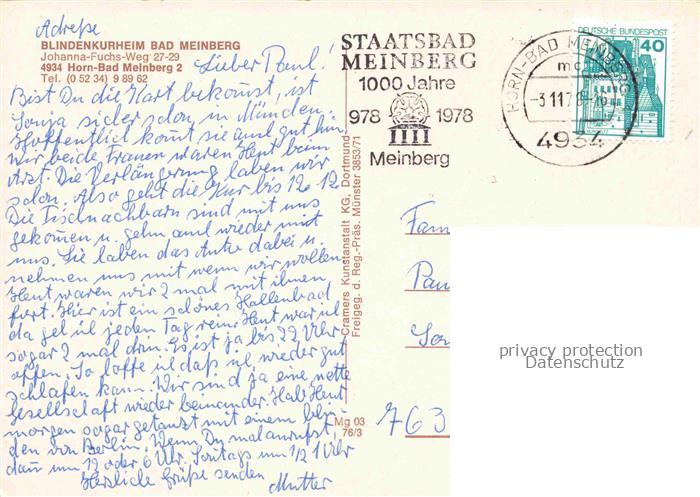 Adreße
BLINDENKURHEIM BAD MEINBERG
Johanna-Fuchs-Weg 27-29
4934 Horn-Bad Meinberg 2
Tel. (0 52 34) 9 89 62
Lieber Paul!
Bist Du die Kart bekomst, ist
Sonja sicher schon in Münden.
Hoffentlich komt sie auch gut hin
wir beide Frauen waren Heut beim
Arzt. Die Verlängerung haben wir
schon. Also geht die Kur bis 12. 12
Die Tischnachbarn sind mit uns
gekomen u. gehn auch wieder mit
uns. Sie haben das Auto dabei u.
nehmen uns mit wenn wir wollen
Heut waren wir 2 mal mit ihnen
fort. Hier ist ein schönes Hallenbad
da geh ich jeden Tag rein. Heut war ich
sogar 2 mal drin. Es ist ja bis 22 Uhr
offen. So hoffe ich daß ich wieder gut
schlafen kann. Wir sind ja eine nette
Gesellschaft wieder beinander. Hab Heut
morgen sogar getanzt mit einem blin-
den von Berlin. Wenn Du mal anrufst,
dan um 12 oder 6 Uhr. Sontags um 1/2 1 Uhr
Herzliche Grüße senden
Mutter
Cramers Kunstanstalt KG, Dortmund
Freigeg. d. Reg.-Präs. Münster 3853/71
Mg 03
76/3
STAATSBAD
MEINBERG
1000 Jahre
978 1978
Meinberg
DEUTSCHE BUNDESPOST
40
HORN-BAD MEINBERG
-3.11.78
4934
Fam
Pau
763
privacy protection
Datenschutz